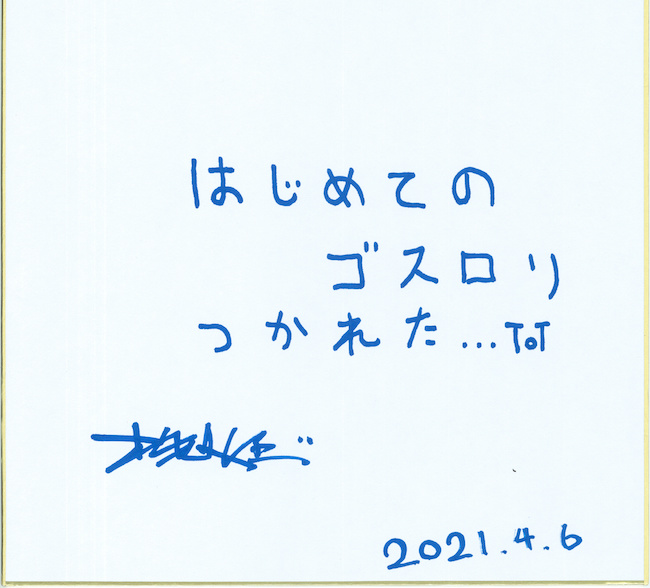 はじめての
ゴスロリ
つかれた...ToT
2021.4.6